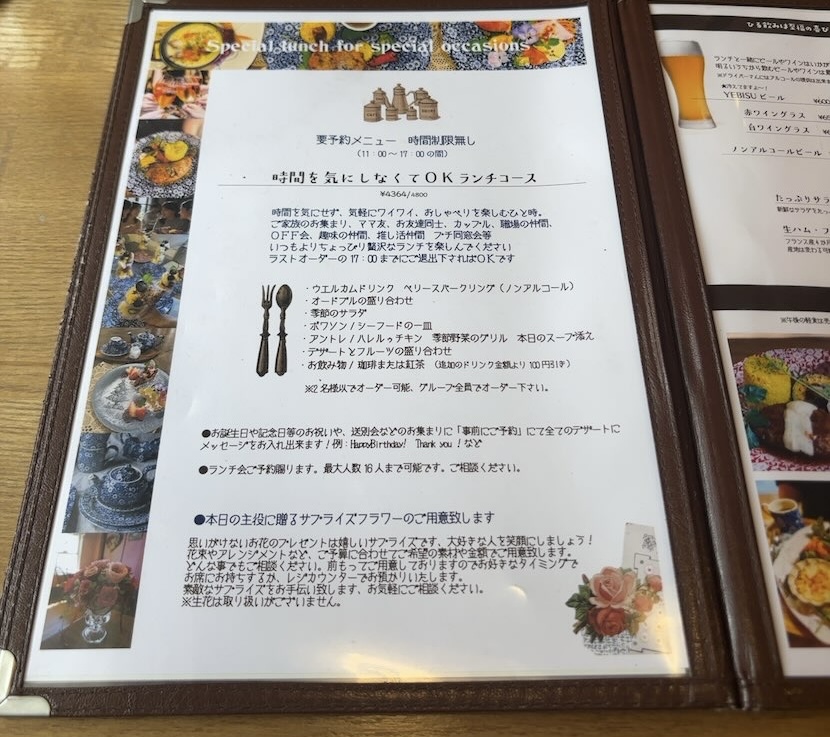 Special lunch for special occasions
要予約メニュー 時間制限無し
（11：00～17：00の間）
時間を気にしなくてOKランチコース
¥4364/4800
時間を気にせず、気軽にワイワイ、おしゃべりを楽しむひと時。
ご家族のお集まり、ママ友、お友達同士、カップル、職場の仲間、
OFF会、趣味の仲間、推し活仲間 プチ同窓会等
いつもよりちょっぴり贅沢なランチを楽しんでください
ラストオーダーの17：00までにご退出下さればOKです
・ウエルカムドリンク ベリースパークリング（ノンアルコール）
・オードブルの盛り合わせ
・季節のサラダ
・ポワソン/シーフードの一皿
・アントレ/ハレルゥチキン 季節野菜のグリル 本日のスープ添え
・デザートとフルーツの盛り合わせ
・お飲み物/珈琲または紅茶 （追加のドリンク金額より100円引き）
※2名様以上でオーダー可能、グループ全員でオーダー下さい。
●お誕生日や記念日等のお祝いや、送別会などのお集まりに「事前にご予約」にて全てのデザートに
メッセージをお入れ出来ます！例：HappyBirthday! Thank you！など
●ランチ会ご予約賜ります。最大人数16人まで可能です。ご相談ください。
●本日の主役に贈るサプライズフラワーのご用意致します
思いがけないお花のプレゼントは嬉しいサプライズです、大好きな人を笑顔にしましょう！
花束やアレンジメントなど、ご予算に合わせてご希望の素材や金額でご用意致します。
どんな事でもご相談ください。前もってご用意しておりますのでお好きなタイミングで
お席にお持ちするか、レジカウンターでお預かりいたします。
素敵なサプライズをお手伝い致します、お気軽にご相談ください。
※生花は取り扱いがございません。
ひる飲みは至福の喜び
ランチと一緒にビールやワインはいかが
明るいうちから飲むビールやワインは
※ドライバーさんにはアルコールの提供は出来ま
★冷えてますよ～！
YEBISUビール ¥600
赤ワイングラス ¥65
白ワイングラス ¥6
ノンアルコールビール
たっぷりサラ
新鮮なサラダをた
生ハム・フ
フランス産
産地は変わる可
※午後の軽食は売